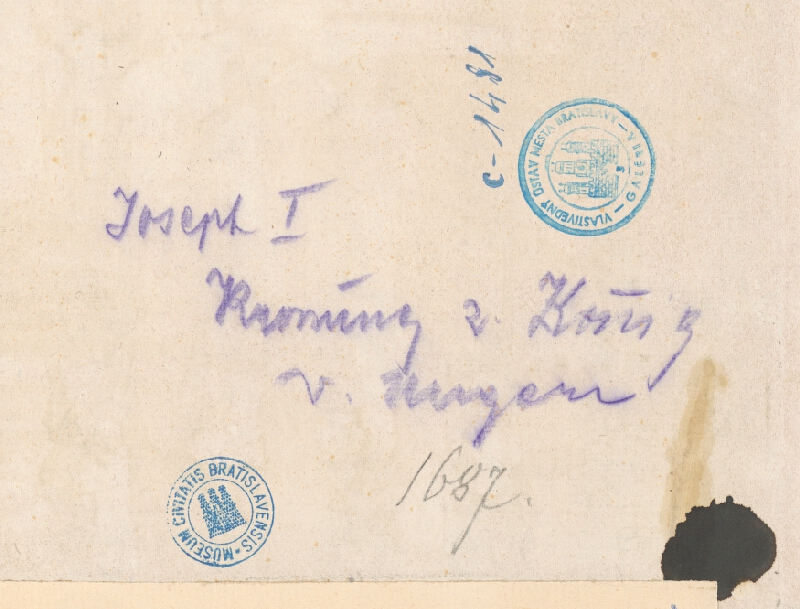 c-1481
VLASTIVEDNÝ ÚSTAV MESTA BRATISLAVY — V
GALÉRIA
Joseph I
Kronung z. König
v. Ungarn
1687.
MUSEUM CIVITATIS BRATISLAVENSIS